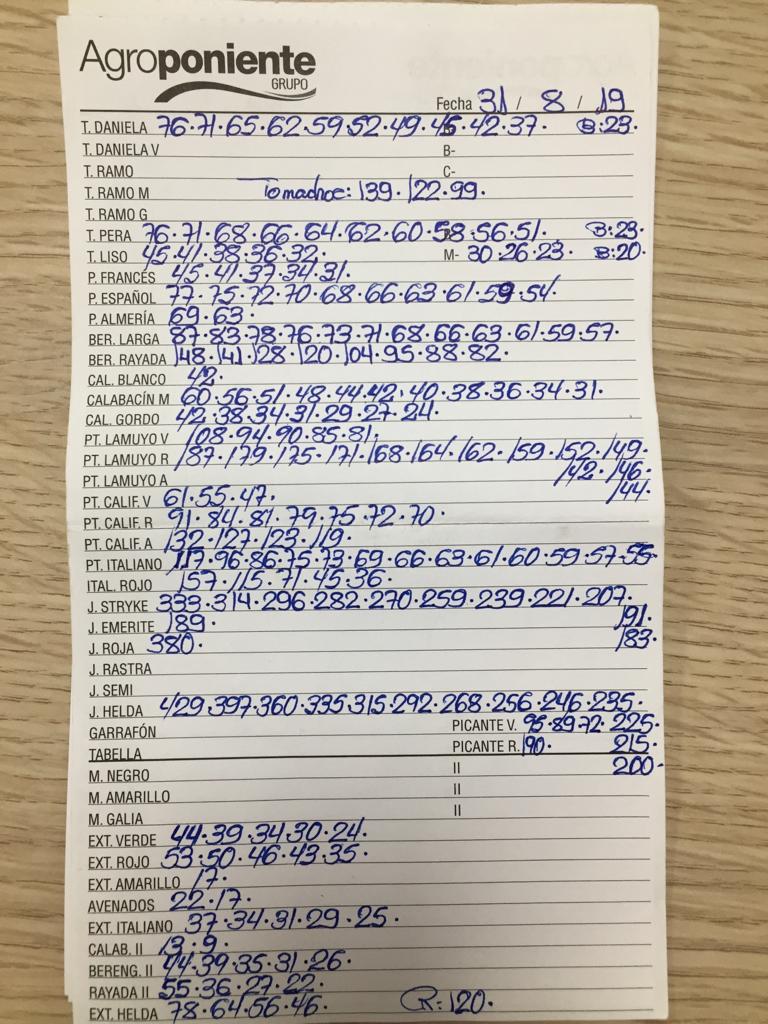 Agroponiente
GRUPO
Fecha 31 / 8 / 19
T. DANELA 76·71·65·62·59·52·49·45·42·37· B:23·
T. DANIELA V B-
T. RAMO C-
T. RAMO M Tomadroe: 139·122·99·
T. RAMO G
T. PERA 76·71·68·66·64·62·60·58·56·51· B:23·
T. LISO 45·41·38·36·32· M- 30·26·23· B:20·
P. FRANCÉS 45·41·37·34·31·
P. ESPAÑOL 77·75·72·70·68·66·63·61·59·54·
P. ALMERÍA 69·63·
BER. LARGA 87·83·78·76·73·71·68·66·63·61·59·57·
BER. RAYADA 148·141·128·120·104·95·88·82·
CAL. BLANCO 42·
CALABACÍN M 60·56·51·48·44·42·40·38·36·34·31·
CAL. GORDO 42·38·34·31·29·27·24·
PT. LAMUYO V 108·94·90·85·81·
PT. LAMUYO R 187·179·175·171·168·164·162·159·152·149·
PT. LAMUYO A 142·146·
PT. CALIF. V 61·55·47· 144·
PT. CALIF. R 91·84·81·79·75·72·70·
PT. CALIF. A 132·127·123·119·
PT. ITALIANO 117·96·86·75·73·69·66·63·61·60·59·57·55·
ITAL. ROJO 157·115·71·45·36·
J. STRYKE 333·314·296·282·270·259·239·221·207·
J. EMERITE 189· 191·
J. ROJA 380· 183·
J. RASTRA
J. SEMI
J. HELDA 429·397·360·335·315·292·268·256·246·235·
GARRAFÓN PICANTE V. 95·89·72· 225·
TABELLA PICANTE R. 190· 215·
M. NEGRO II 200·
M. AMARILLO II
M. GALIA II
EXT. VERDE 44·39·34·30·24·
EXT. ROJO 53·50·46·43·35·
EXT. AMARILLO 17·
AVENADOS 22·17·
EXT. ITALIANO 37·34·31·29·25·
CALAB. II 13·9·
BERENG. II 44·39·35·31·26·
RAYADA II 55·36·27·22·
EXT. HELDA 78·64·56·46· R:120·